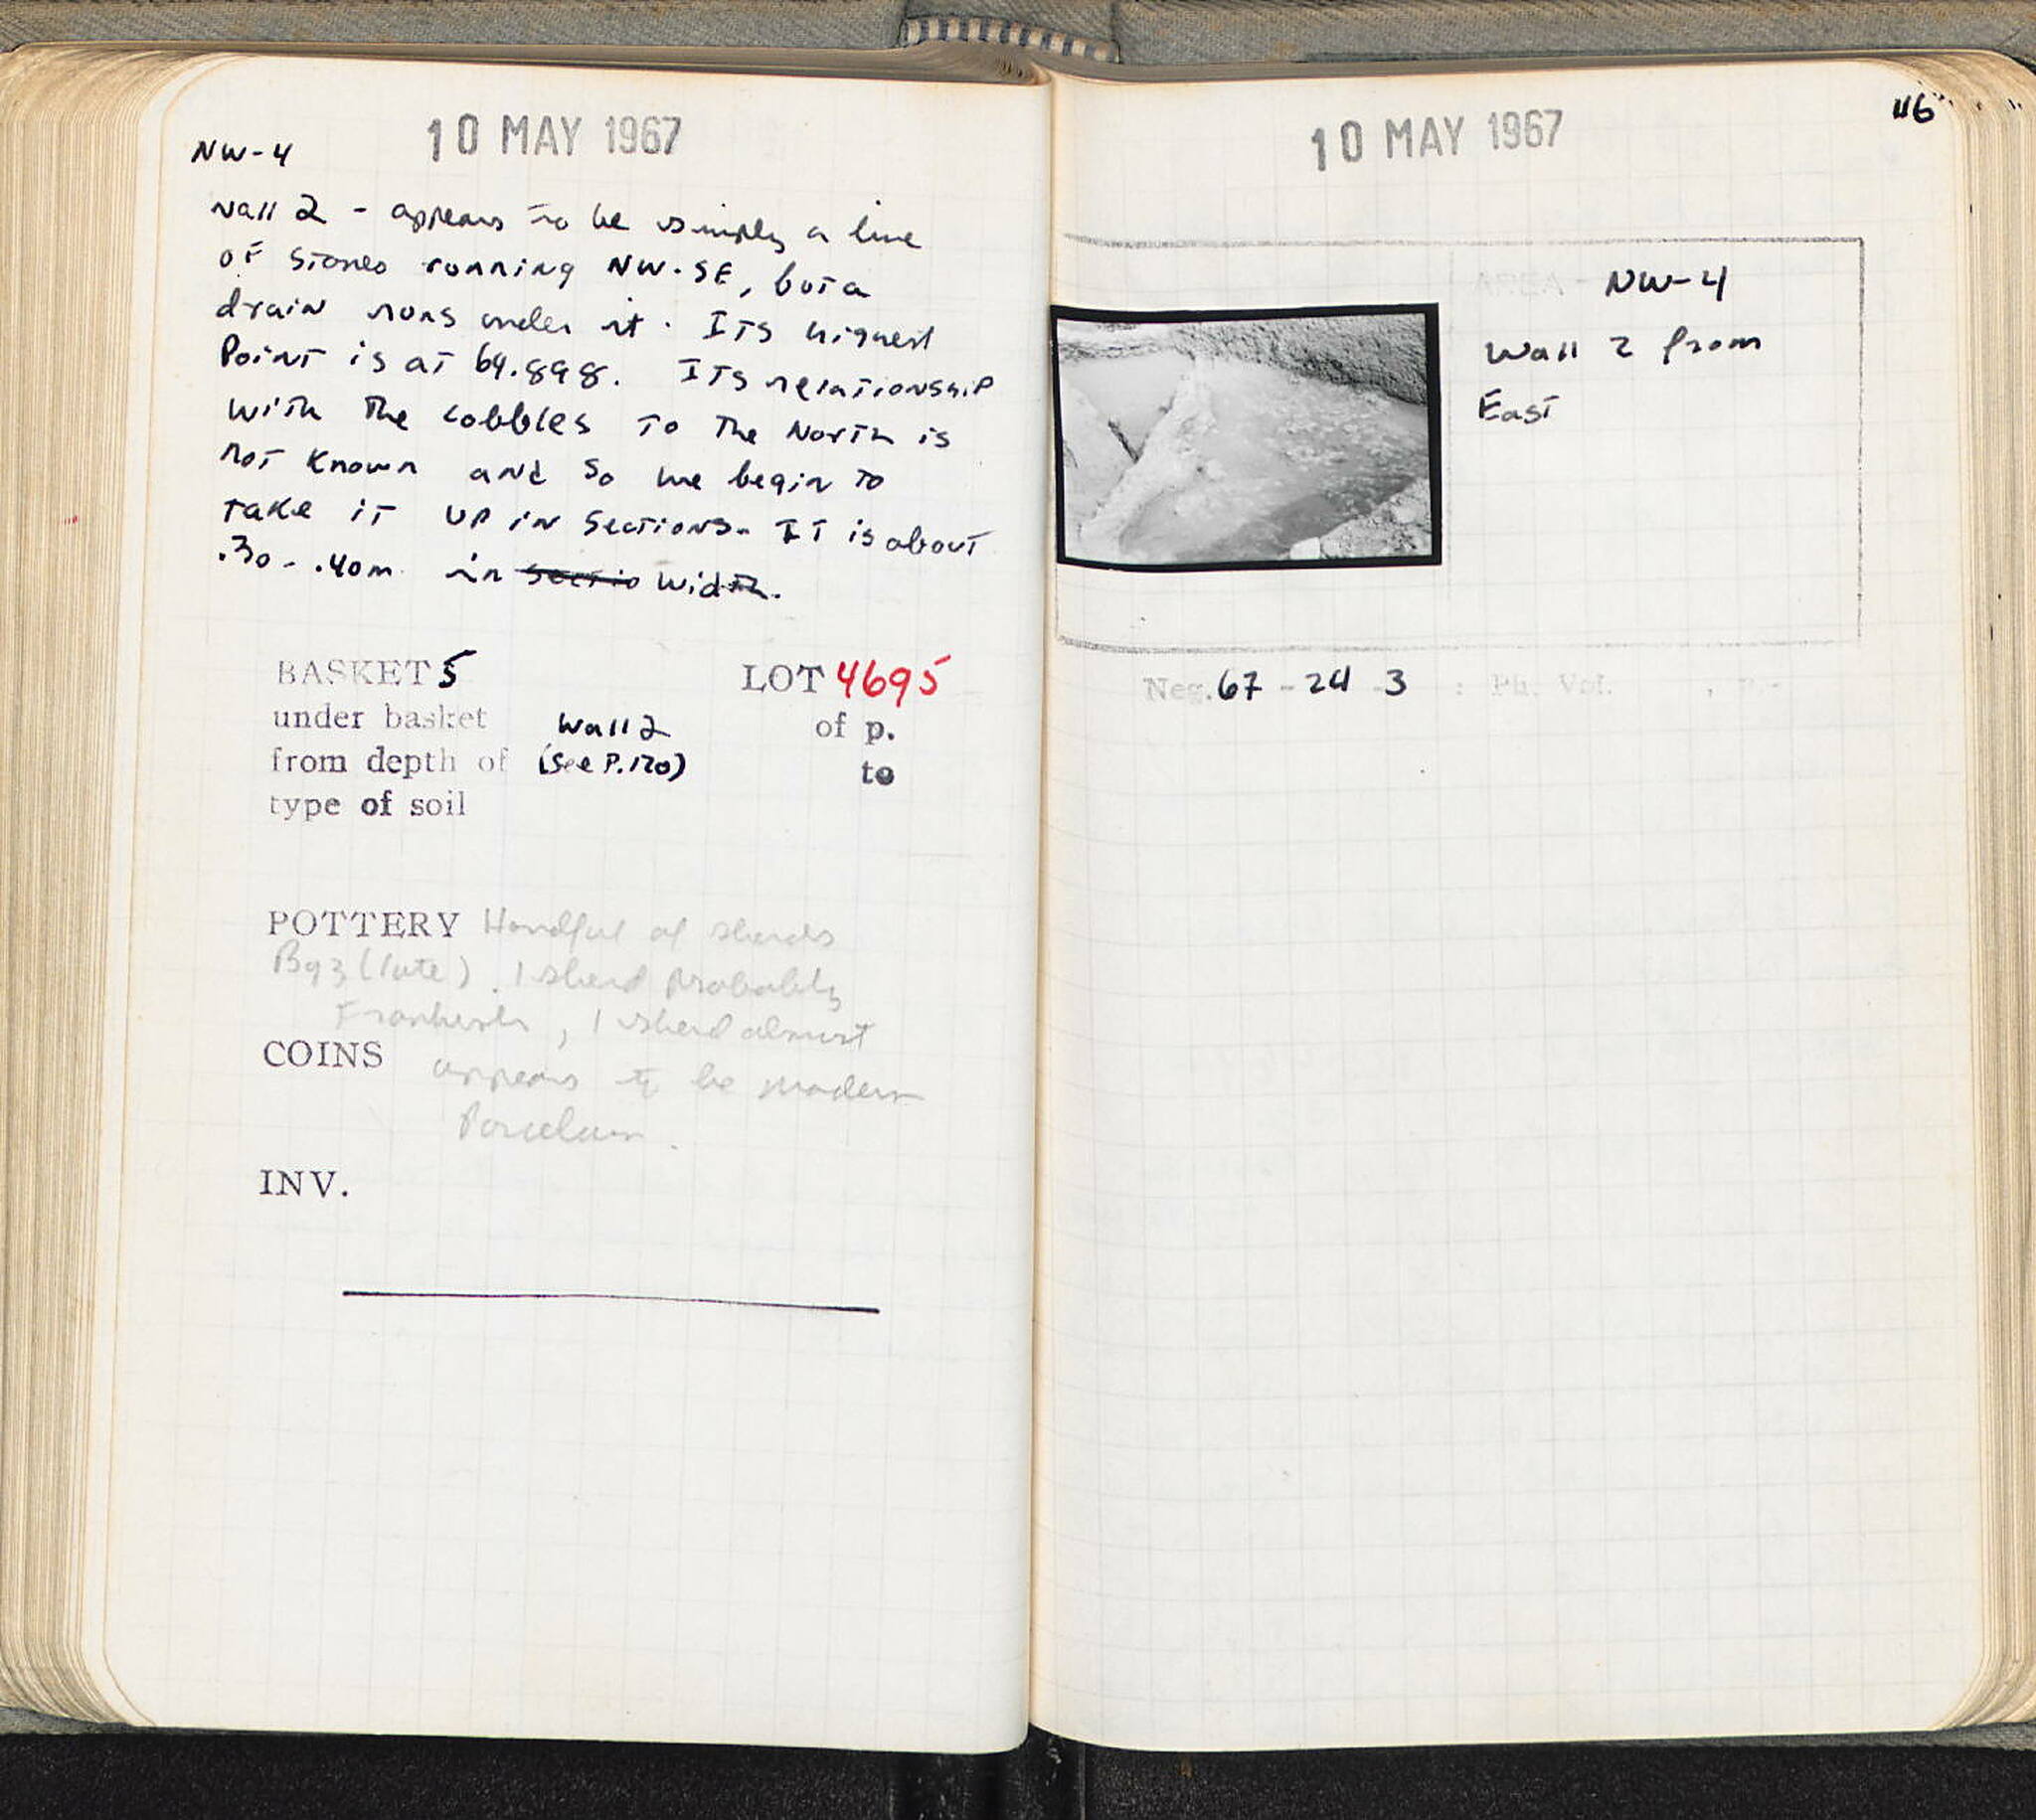 NW-4
10 MAY 1967
Wall 2 - appears to be simply a line
of stones running NW-SE, but a
drain runs under it. Its highest
Point is at 64.898. Its relationship
with the cobbles to the North is
not known and so we begin to
take it up in sections. It is about
.30 - .40m. in sectio width.
BASKET 5
LOT 4695
under basket Wall 2
of p.
from depth of (See P.120)
to
type of soil
POTTERY Handful of sherds
Byz (late). 1 sherd probably
Frankish, 1 sherd almost
COINS
appears to be modern
Porcelain.
INV.
116
10 MAY 1967
AREA - NW-4
Wall 2 from
East
Neg. 67 - 24 3 : Ph. Vol. , p.-